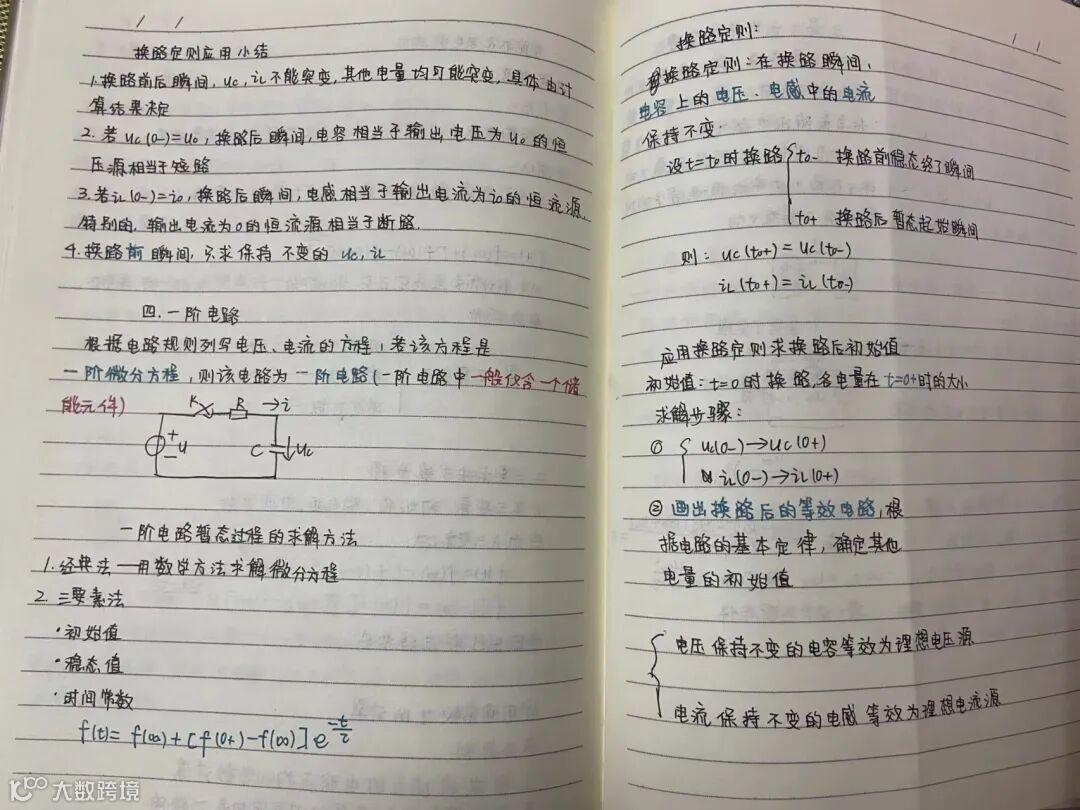 换路定则应用小结
1.换路前后瞬间,uc,iL不能突变,其他电量均可能突变,具体由计
算结果决定
2.若uc(0-)=u0,换路后瞬间,电容相当于输出电压为u0的恒
压源相当于短路
3.若iL(0-)=i0,换路后瞬间,电感相当于输出电流为i0的恒流源,
特别的,输出电流为0的恒流源相当于断路.
4.换路前瞬间,只求保持不变的uc,iL
四.一阶电路
根据电路规则列写电压、电流的方程,若该方程是
一阶微分方程,则该电路为一阶电路(一阶电路中一般仅含一个储
能元件)
K R →i
+ u - C uc
一阶电路暂态过程的求解方法
1.经典法—用数学方法求解微分方程
2.三要素法
·初始值
·稳态值
·时间常数
f(t)=f(∞)+[f(0+)-f(∞)]e^(-t/τ)
/ /
/ /
换路定则:
换路定则:在换路瞬间,
电容上的电压、电感中的电流
保持不变.
设t=t0时换路{t0- 换路前稳态终了瞬间
t0+ 换路后暂态起始瞬间
则:uc(t0+)=uc(t0-)
iL(t0+)=iL(t0-)
应用换路定则求换路后初始值
初始值:t=0时换路,各电量在t=0+时的大小
求解步骤:
① {uc(0-)→uc(0+)
iL(0-)→iL(0+)
②画出换路后的等效电路,根
据电路的基本定律,确定其他
电量的初始值
{电压保持不变的电容等效为理想电压源
电流保持不变的电感等效为理想电流源
大数跨境